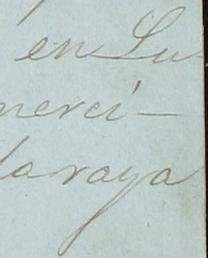 en Lu-
merci-
la raya